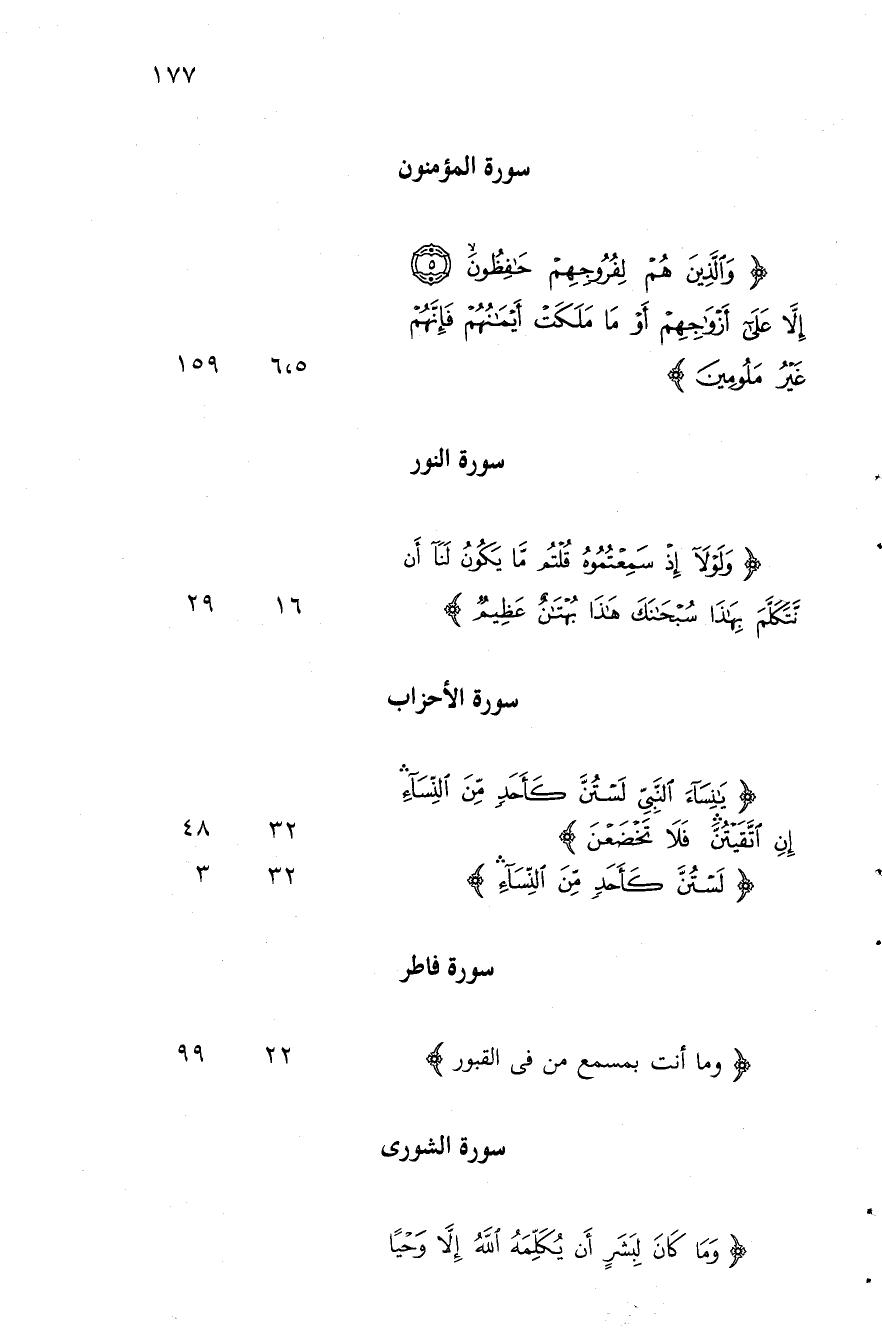 ١٧٧
سورة المؤمنون
﴿ وَٱلَّذِينَ هُمْ لِفُرُوجِهِمْ حَٰفِظُونَ ۙ ۝٥
إِلَّا عَلَىٰٓ أَزْوَٰجِهِمْ أَوْ مَا مَلَكَتْ أَيْمَٰنُهُمْ فَإِنَّهُمْ
غَيْرُ مَلُومِينَ ﴾ ٦،٥ ١٥٩
سورة النور
﴿ وَلَوْلَآ إِذْ سَمِعْتُمُوهُ قُلْتُم مَّا يَكُونُ لَنَآ أَن
نَّتَكَلَّمَ بِهَٰذَا سُبْحَٰنَكَ هَٰذَا بُهْتَٰنٌ عَظِيمٌ ﴾ ١٦ ٢٩
سورة الأحزاب
﴿ يَٰنِسَآءَ ٱلنَّبِىِّ لَسْتُنَّ كَأَحَدٍ مِّنَ ٱلنِّسَآءِ ۛ
إِنِ ٱتَّقَيْتُنَّ ۛ فَلَا تَخْضَعْنَ ﴾ ٣٢ ٤٨
﴿ لَسْتُنَّ كَأَحَدٍ مِّنَ ٱلنِّسَآءِ ۛ ﴾ ٣٢ ٣
سورة فاطر
﴿ وما أنت بمسمع من فى القبور ﴾ ٢٢ ٩٩
سورة الشورى
﴿ وَمَا كَانَ لِبَشَرٍ أَن يُكَلِّمَهُ ٱللَّهُ إِلَّا وَحْيًا